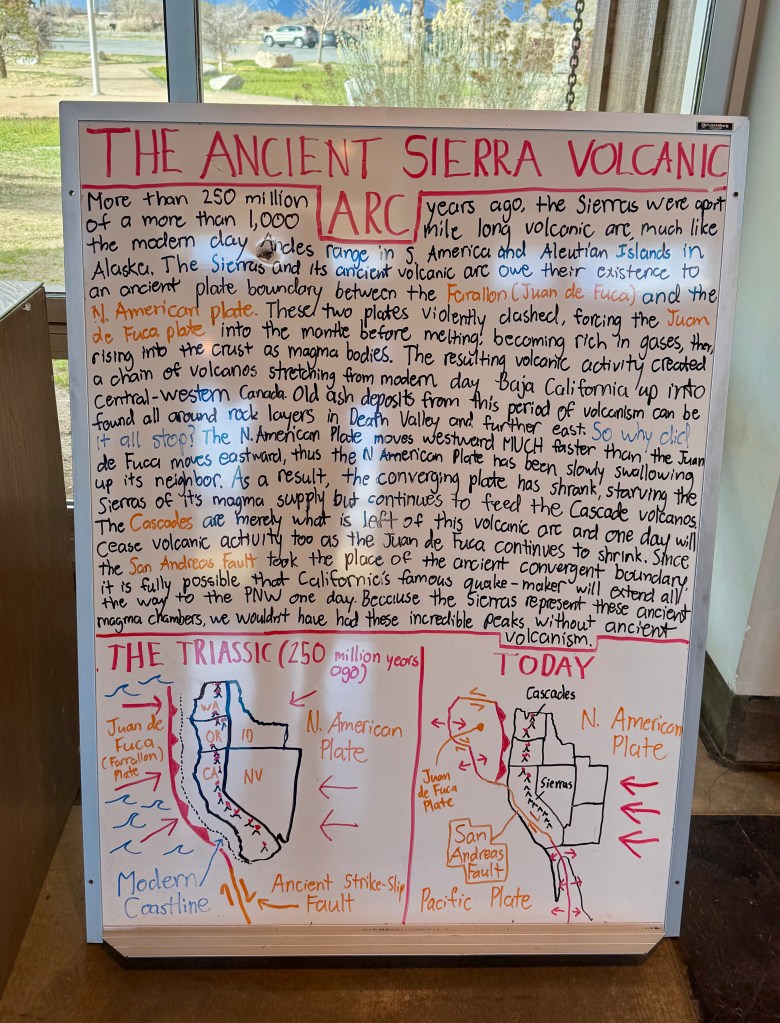 THE ANCIENT SIERRA VOLCANIC
ARC
More than 250 million years ago, the Sierras were apart
of a more than 1,000 mile long volcanic arc much like
the modern day Andes range in S. America and Aleutian Islands in
Alaska. The Sierras and its ancient volcanic arc owe their existence to
an ancient plate boundary between the Farallon (Juan de Fuca) and the
N. American plate. These two plates violently clashed, forcing the Juan
de Fuca plate into the mantle before melting, becoming rich in gases, then,
rising into the crust as magma bodies. The resulting volcanic activity created
a chain of volcanos stretching from modern day Baja California up into
central-western Canada. Old ash deposits from this period of volcanism can be
found all around rock layers in Death Valley and further east. So why did
it all stop? The N. American Plate moves westward MUCH faster than the Juan
de Fuca moves eastward, thus the N American Plate has been slowly swallowing
up its neighbor. As a result, the converging plate has shrank, starving the
Sierras of it's magma supply but continues to feed the Cascade volcanos.
The Cascades are merely what is left of this volcanic arc and one day will
cease volcanic activity too as the Juan de Fuca continues to shrink. Since
the San Andreas Fault took the place of the ancient convergent boundary,
it is fully possible that California's famous quake-maker will extend all
the way to the PNW one day. Because the Sierras represent these ancient
magma chambers, we wouldn't have had these incredible peaks without ancient
volcanism.
THE TRIASSIC (250 million years
ago)
WA
OR
ID
CA
NV
Juan de
Fuca
(Farrallon)
Plate
N. American
Plate
Modern
Coastline
Ancient Strike-Slip
Fault
TODAY
Cascades
N. American
Plate
Juan
de Fuca
Plate
Sierras
San
Andreas
Fault
Pacific Plate